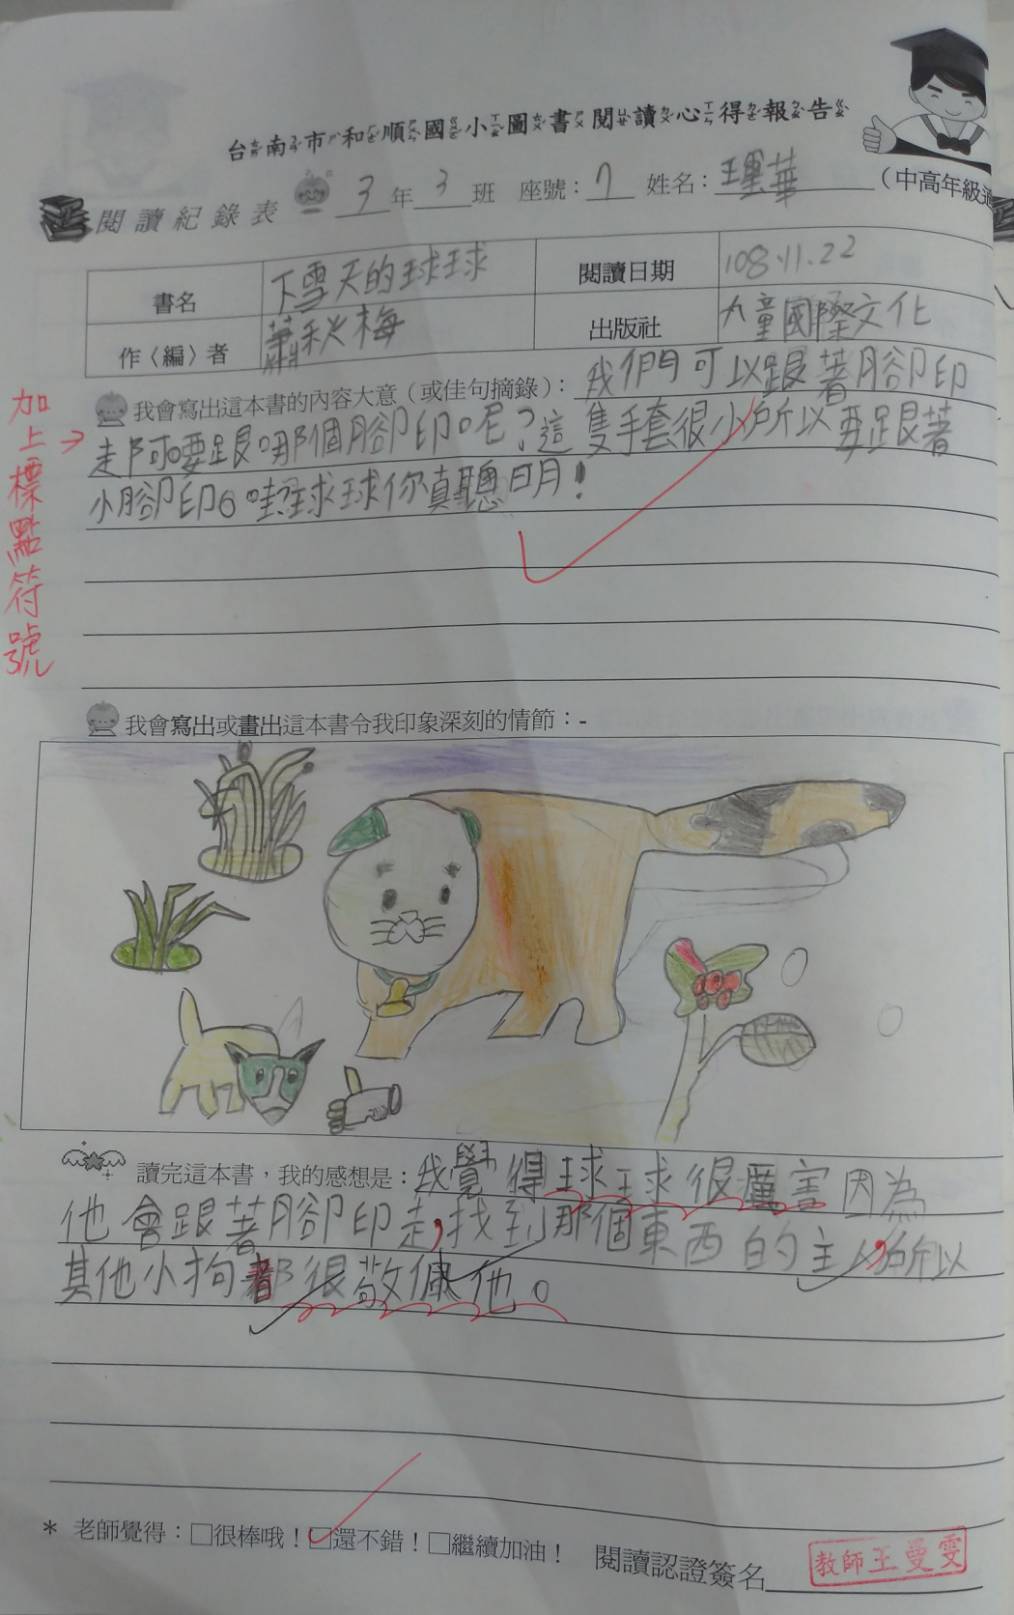 台南市和順國小圖書閱讀心得報告
閱讀紀錄表 3年3班 座號：7 姓名：王 華 （中高年級適
書名 下雪天的球球 閱讀日期 108.11.22
作〈編〉者 蕭秋梅 出版社 九童國際文化
我會寫出這本書的內容大意（或佳句摘錄）：我們可以跟著腳印
走阿要跟哪個腳印呢？這隻手套很小所以要跟著
小腳印。哇球球你真聰明！
加上標點符號
我會寫出或畫出這本書令我印象深刻的情節：
讀完這本書，我的感想是：我覺得球球很厲害因為
他會跟著腳印走，找到那個東西的主人，所以
其他小狗都很敬佩他。
* 老師覺得：□很棒哦！□還不錯！□繼續加油！ 閱讀認證簽名
教師王曼雯